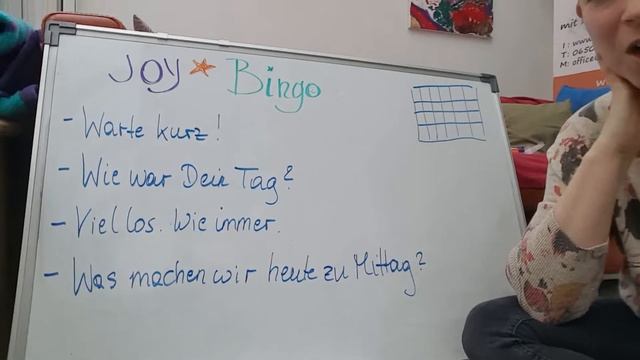 JOY Bingo
- Warte kurz!
- Wie war Dein Tag?
- Viel los. Wie immer.
- Was machen wir heute zu Mittag?
mit
I: www.
T: 0650
M: office